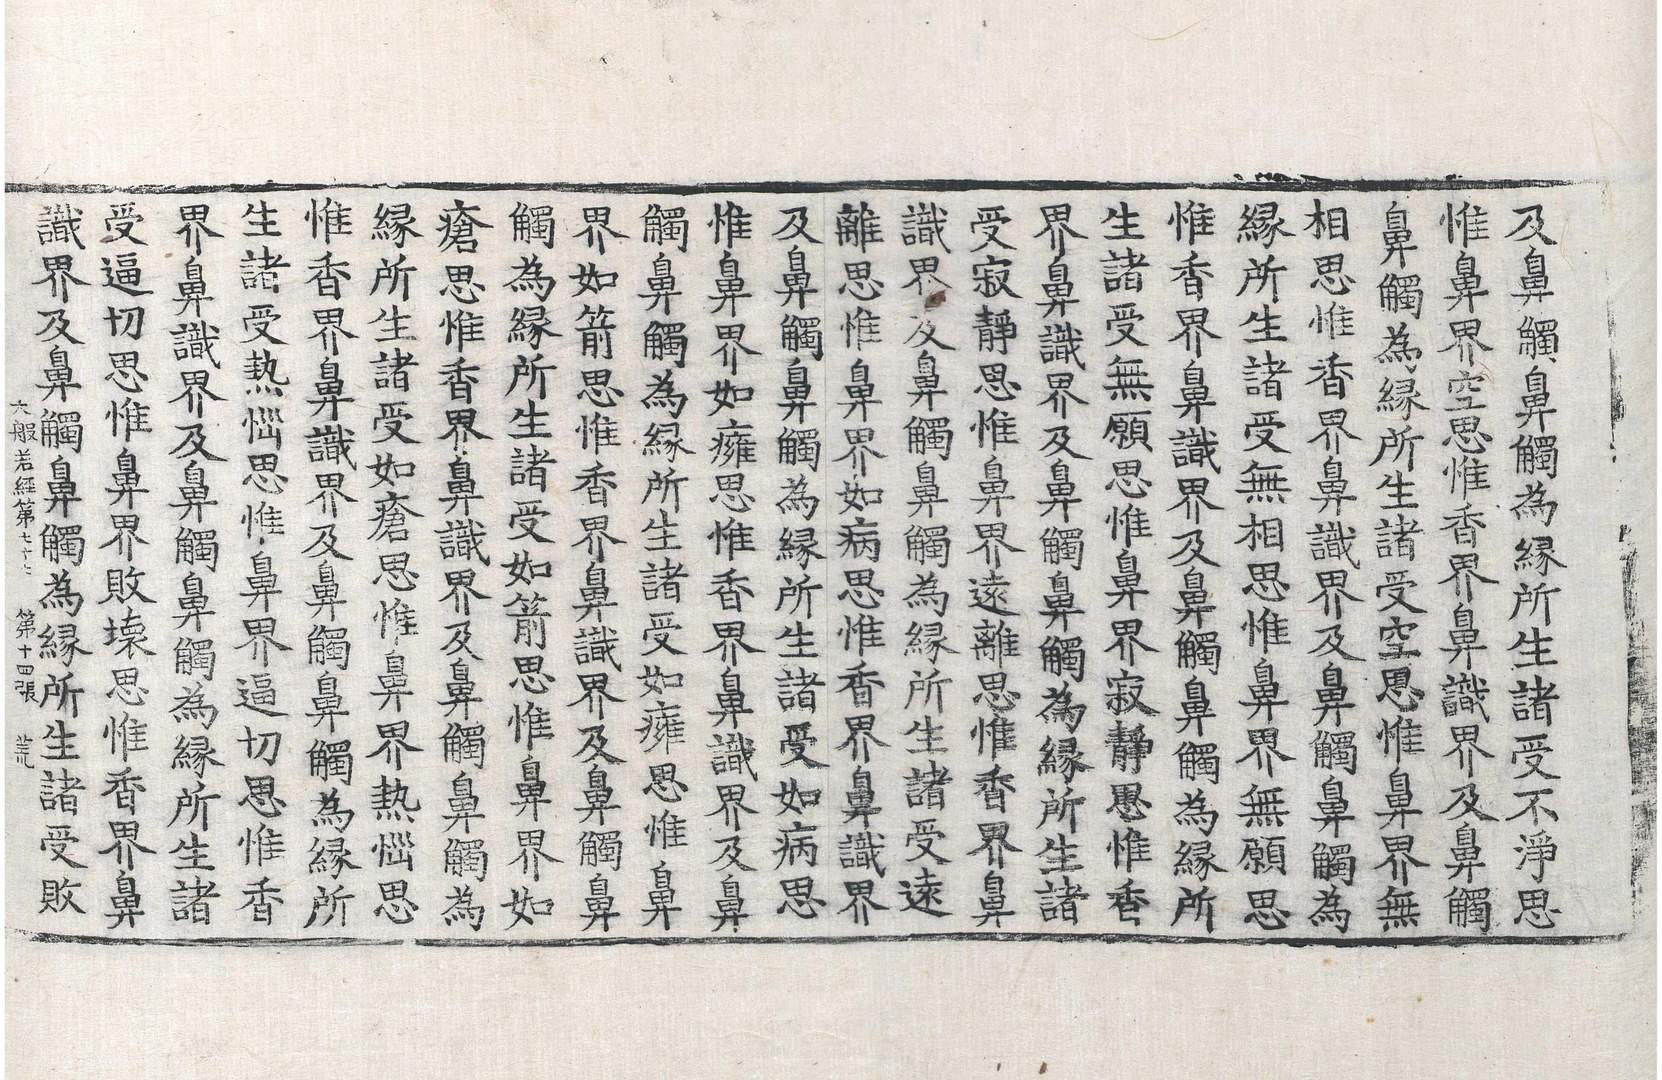 及鼻觸鼻觸為緣所生諸受不淨思
惟鼻界空思惟香界鼻識界及鼻觸
鼻觸為緣所生諸受空思惟鼻界無
相思惟香界鼻識界及鼻觸鼻觸為
緣所生諸受無相思惟鼻界無願思
惟香界鼻識界及鼻觸鼻觸為緣所
生諸受無願思惟鼻界寂靜思惟香
界鼻識界及鼻觸鼻觸為緣所生諸
受寂靜思惟鼻界遠離思惟香界鼻
識界及鼻觸鼻觸為緣所生諸受遠
離思惟鼻界如病思惟香界鼻識界
及鼻觸鼻觸為緣所生諸受如病思
惟鼻界如癰思惟香界鼻識界及鼻
觸鼻觸為緣所生諸受如癰思惟鼻
界如箭思惟香界鼻識界及鼻觸鼻
觸為緣所生諸受如箭思惟鼻界如
瘡思惟香界鼻識界及鼻觸鼻觸為
緣所生諸受如瘡思惟鼻界熱惱思
惟香界鼻識界及鼻觸鼻觸為緣所
生諸受熱惱思惟鼻界逼切思惟香
界鼻識界及鼻觸鼻觸為緣所生諸
受逼切思惟鼻界敗壞思惟香界鼻
識界及鼻觸鼻觸為緣所生諸受敗
大般若經第七十七 第十四張 荒